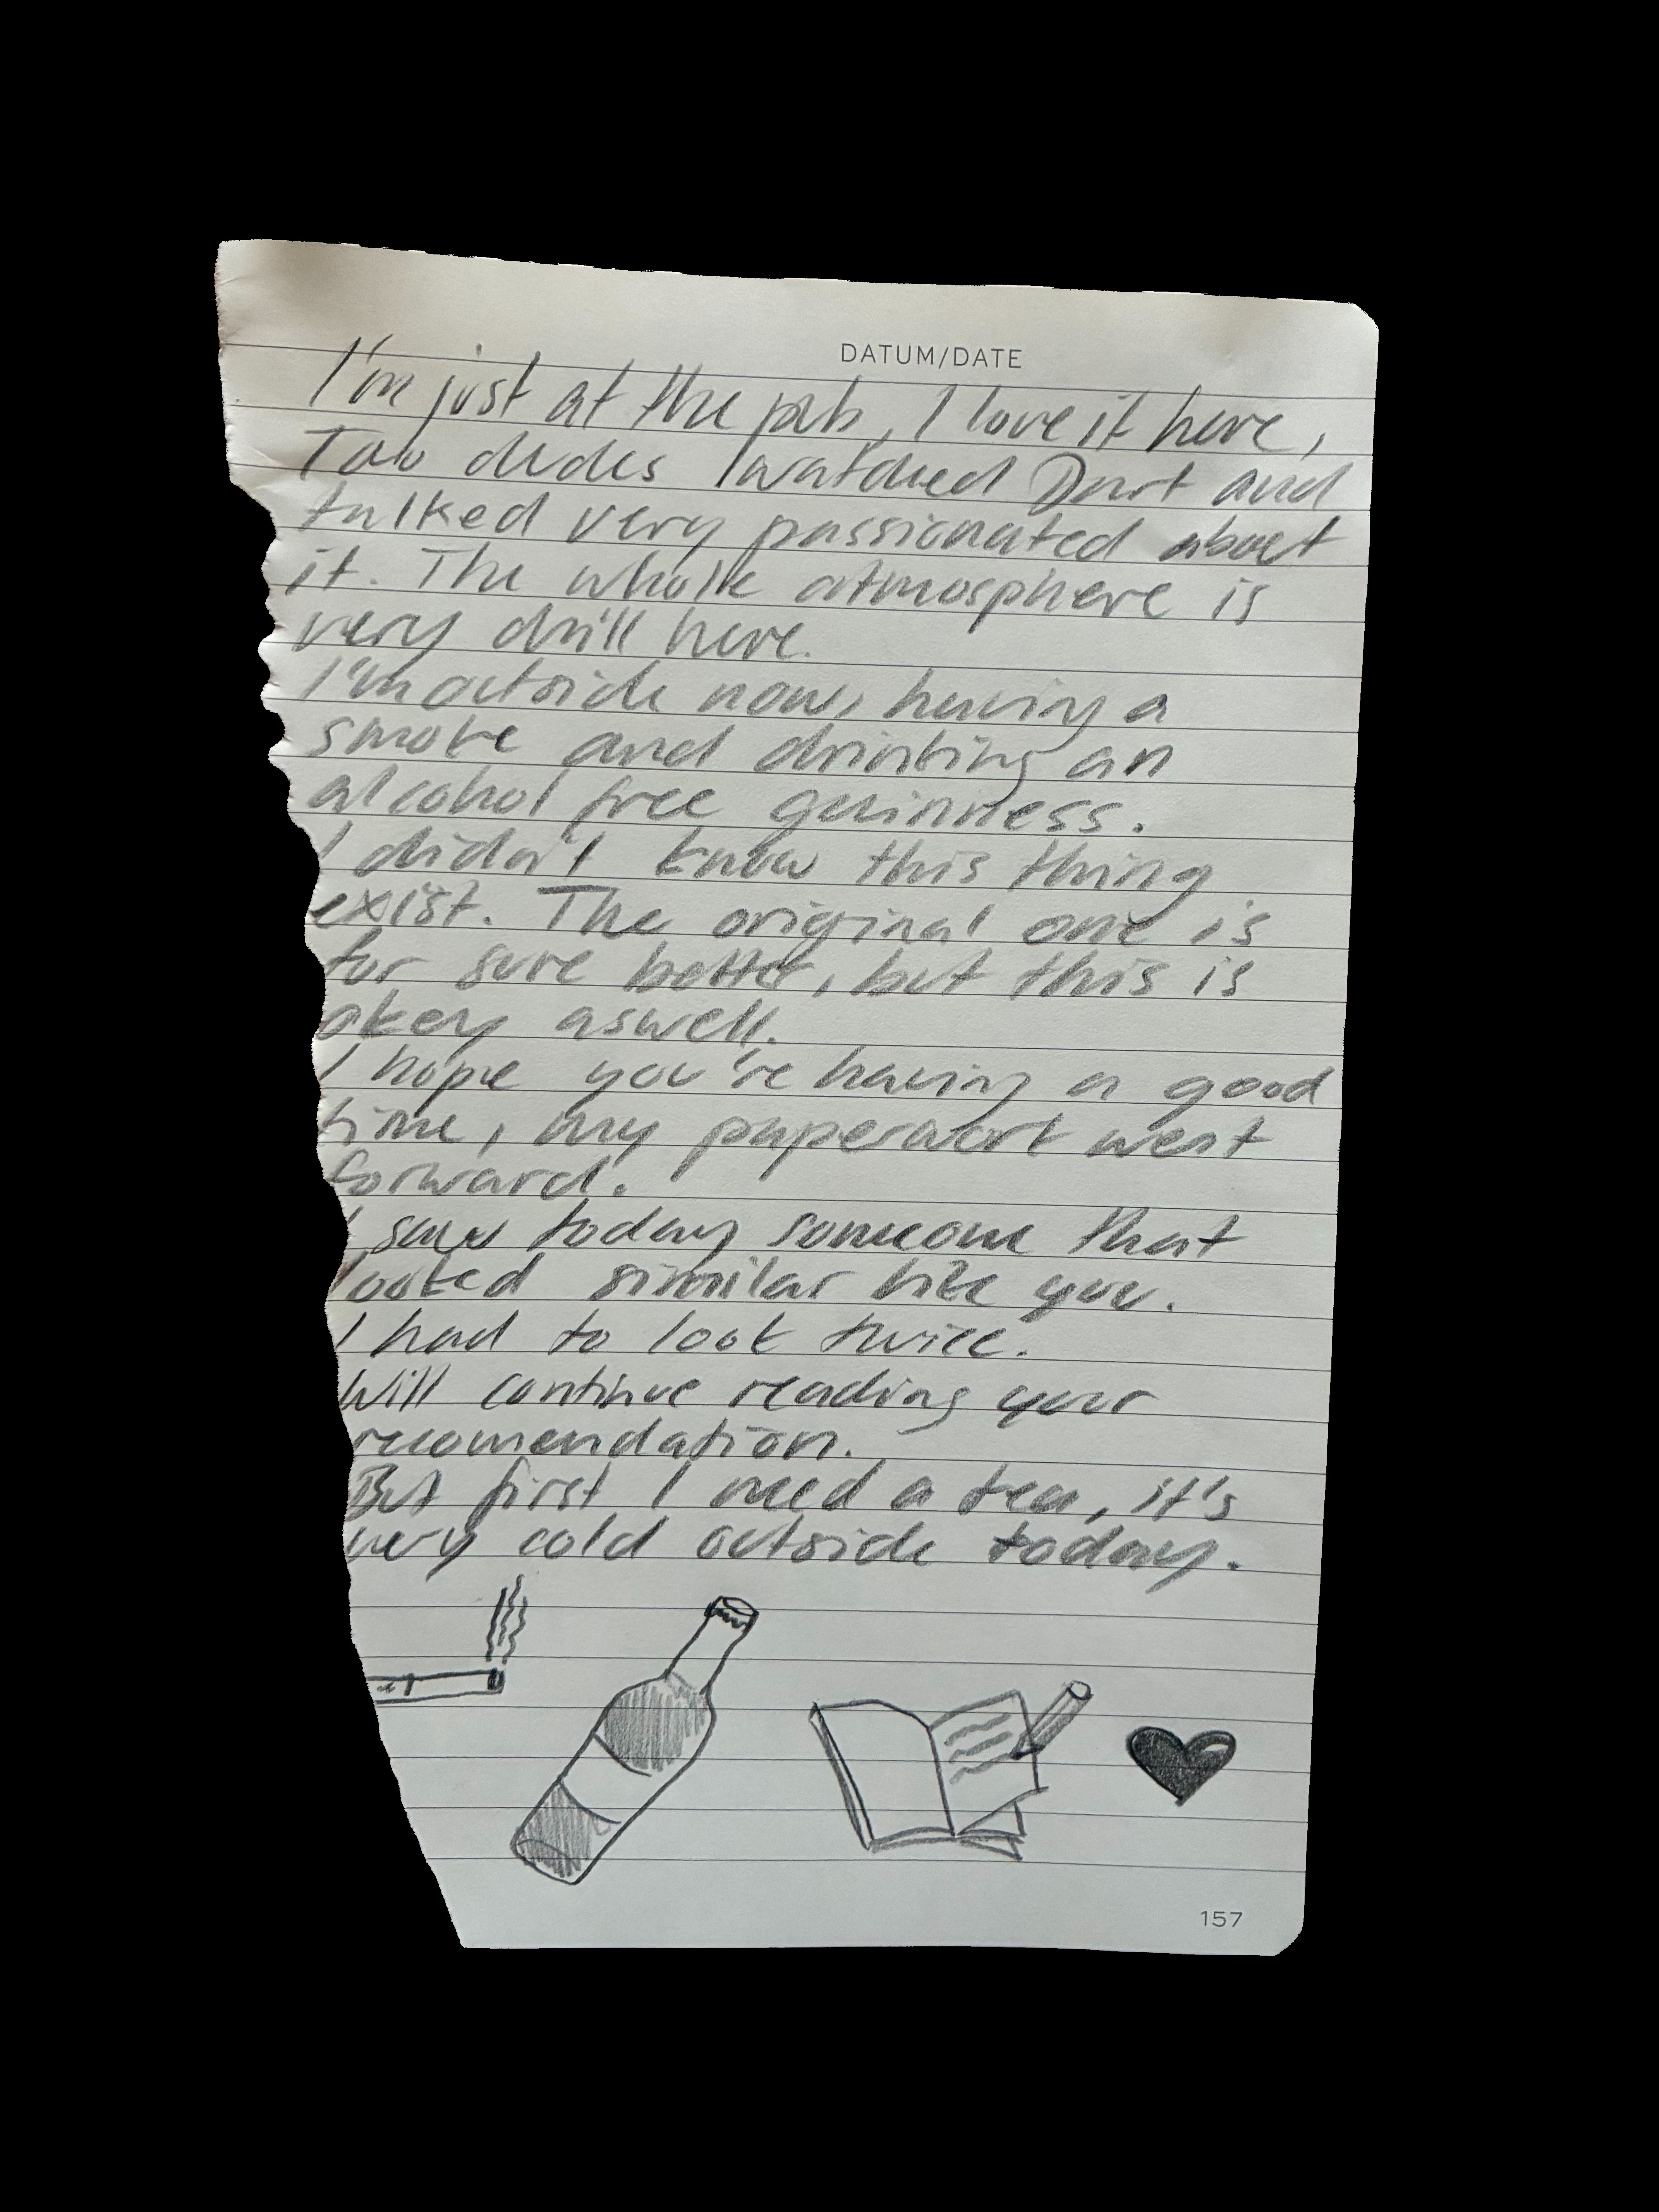 DATUM/DATE
I'm just at the pub, I love it here,
Two dudes watched Dart and
talked very passionated about
it. The whole atmosphere is
very chill here.
I'm outside now, having a
smoke and drinking an
alcohol free guinness.
I didn't know this thing
exist. The original one is
for sure better, but this is
okey aswell.
I hope you're having a good
time, my paperwork went
forward.
I saw today someone that
looked similar like you.
I had to look twice.
Will continue reading your
recomendation.
But first I need a tea, it's
very cold outside today.
157